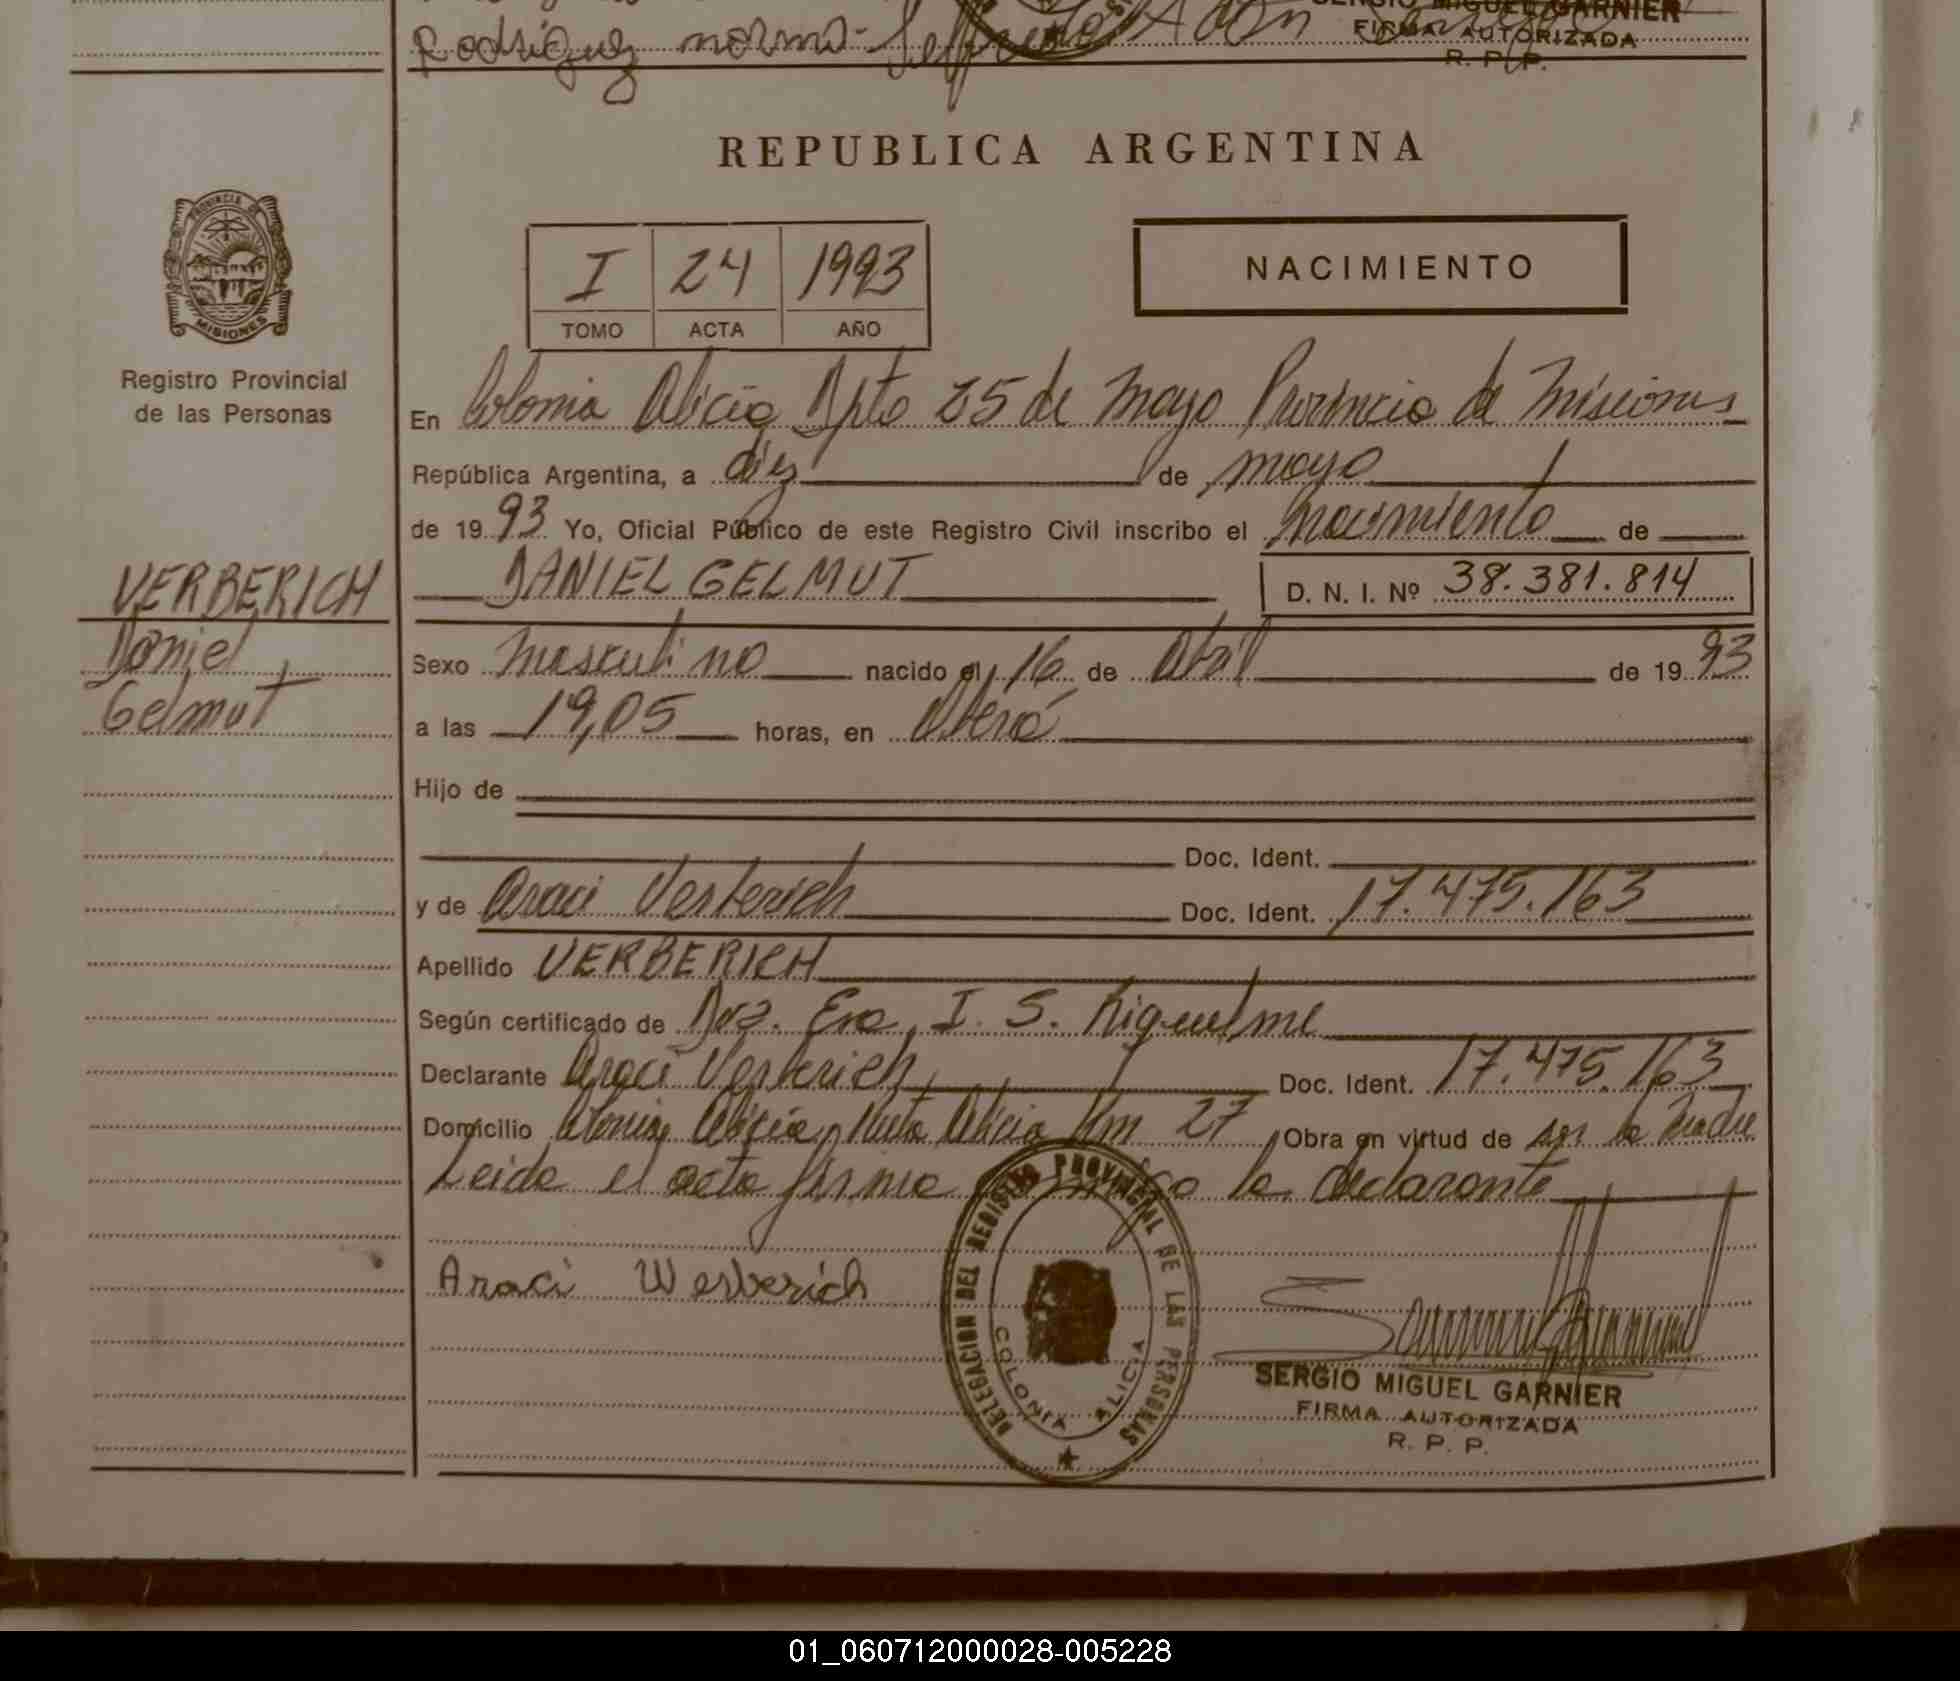 Rodriguez norma-
SERGIO MIGUEL GARNIER
FIRMA AUTORIZADA
R. P. P.
REPUBLICA ARGENTINA
PROVINCIA DE
MISIONES
Registro Provincial
de las Personas
I 24 1993
TOMO ACTA AÑO
NACIMIENTO
En Colonia Alicia Dpto 25 de Mayo Provincia de Misiones
República Argentina, a diez de mayo
de 1993 Yo, Oficial Público de este Registro Civil inscribo el Nacimiento de
VERBERICH
Daniel
Gelmut
DANIEL GELMUT D. N. I. Nº 38.381.814
Sexo Masculino nacido el 16 de Abril de 1993
a las 19,05 horas, en Oberá
Hijo de
Doc. Ident.
y de Araci Verberich Doc. Ident. 17.475.163
Apellido VERBERICH
Según certificado de Dra. Eva I. S. Riquelme
Declarante Araci Verberich Doc. Ident. 17.475.163
Domicilio Colonia Alicia, Ruta Alicia Km 27 Obra en virtud de ser la madre
Leida el acta firma conmigo la declarante
Araci Werberich
DELEGACION DEL REGISTRO PROVINCIAL DE LAS PERSONAS
COLONIA ALICIA
SERGIO MIGUEL GARNIER
FIRMA AUTORIZADA
R. P. P.
01_060712000028-005228